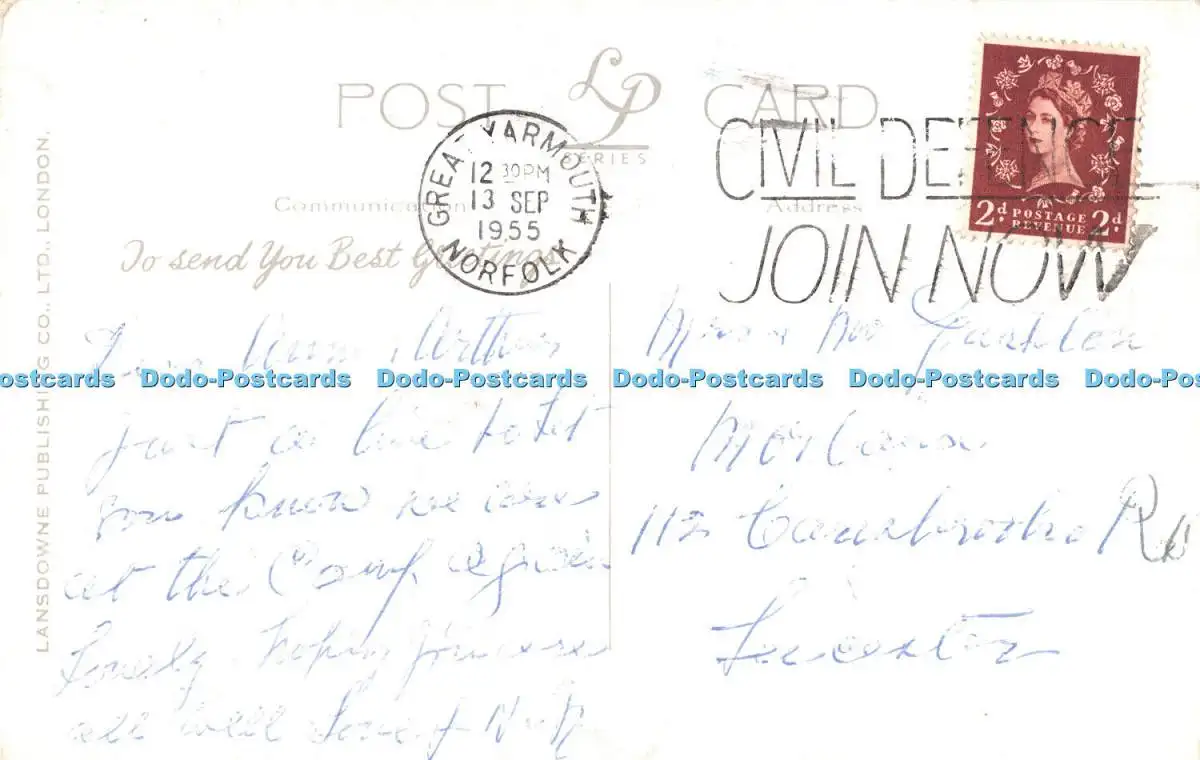 POST LP CARD
SERIES
GREAT YARMOUTH
12 30PM
13 SEP
1955
NORFOLK
CIVIL DEFENCE
JOIN NOW
2d POSTAGE REVENUE 2d
Communication
Address
To send You Best Greetings
LANSDOWNE PUBLISHING CO., LTD., LONDON.
Arthur
just a line to let
you know we are
at the Camp again
Lovely hoping you are
all well
Mr
112 Rd
Leicester
ostcards Dodo-Postcards Dodo-Postcards Dodo-Postcards Dodo-Postcards Dodo-Pos